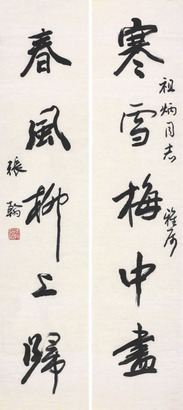 寒雪梅中盡
祖炳同志
雅屬
春風柳上歸
張翰